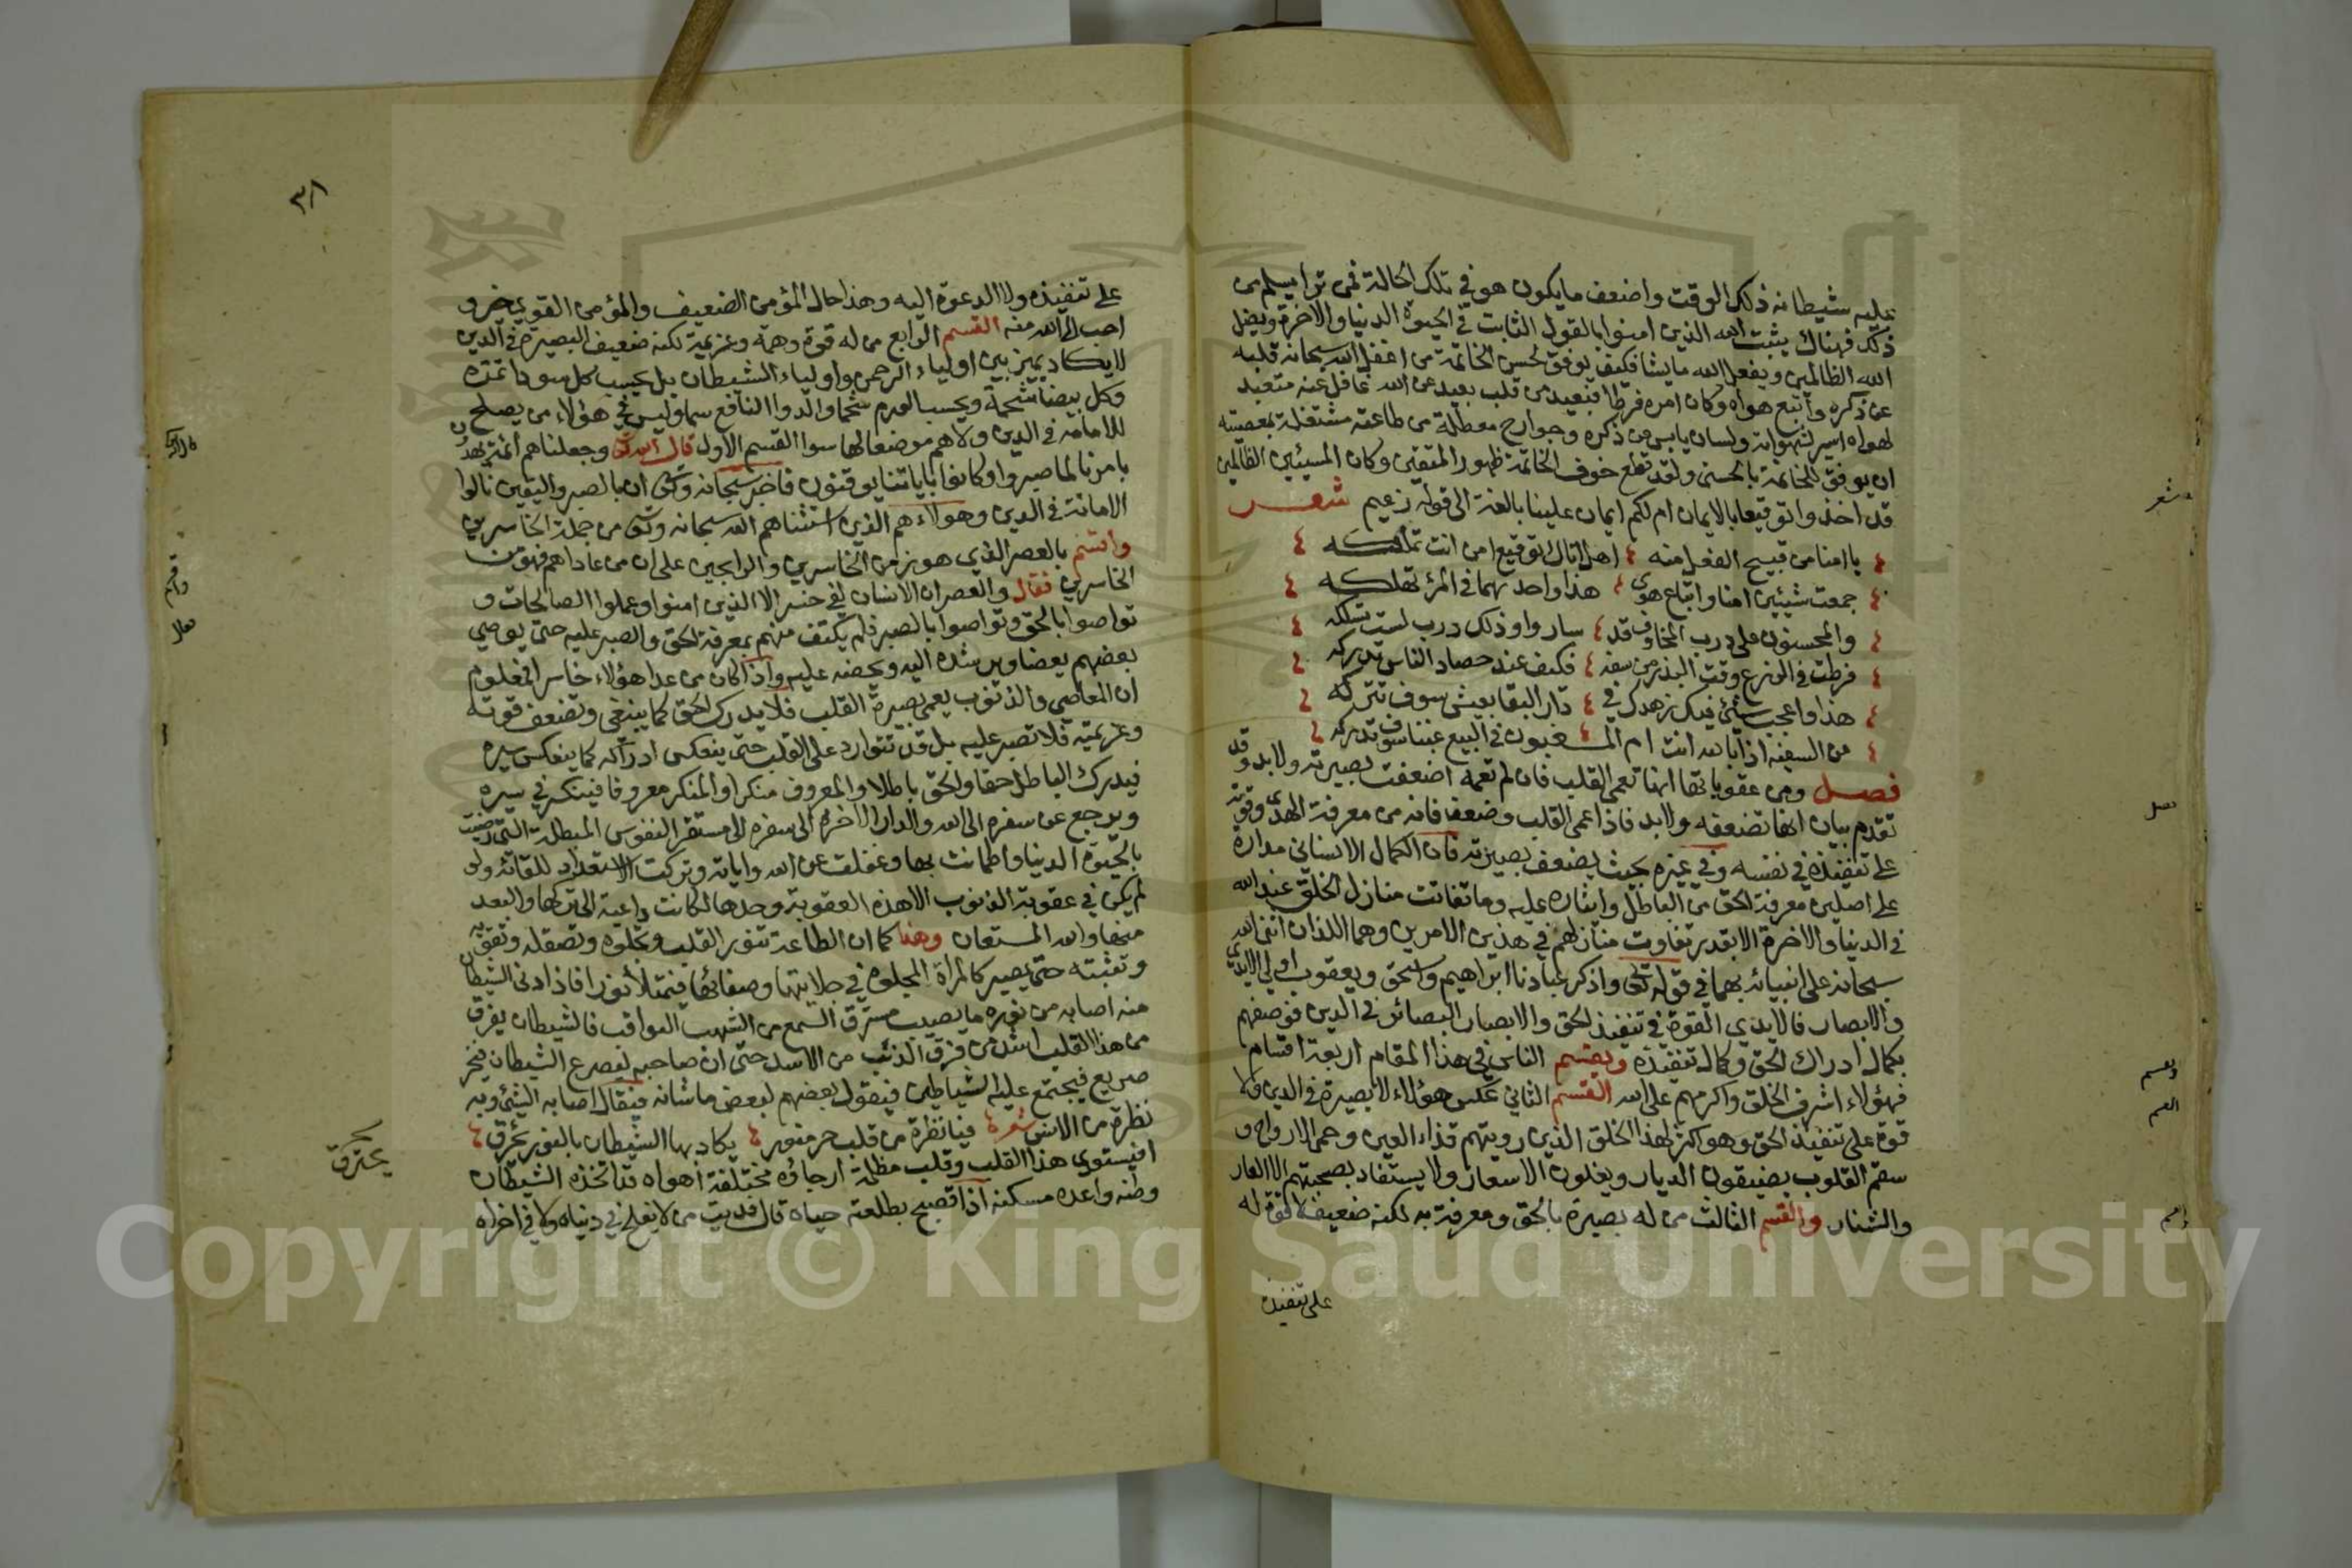 عليه شيطانه ذلك الوقت واضعف ما يكون هو في تلك الحالة فمن ترا يسلم من
ذلك فهناك يثبت الله الذين امنوا بالقول الثابت في الحيوة الدنيا والاخرة ويضل
الله الظالمين ويفعل الله ما يشا فكيف يوفق لحسن الخاتمة من اغفل الله سبحانه قلبه
عن ذكره واتبع هواه وكان امره فرطا فبعيد من قلب بعيد عن الله غافل عنه متعبد
لهواه اسير لشهواته ولسان يابس من ذكره وجوارح معطلة من طاعته مشتغلة بمعصيته
ان يوفق للخاتمة بالحسنى ولقد قطع خوف الخاتمة ظهور المتقين وكان المسيئين الظالمين
قد اخذوا توقيعا بالايمان ام لكم ايمان علينا بالغة الى قوله زعيم شعر
يا امنا من قبيح الفعل منه اهل اتاك توقيع امن انت تملكه
جمعت شيئين امنا واتباع هوى هذا واحد بهما في المرؤ تهلكه
والمحسنون على درب المخاوف قد ساروا وذلك درب لست تسلكه
فرطت في الزرع وقت البذر من سفه فكيف عند حصاد الناس تدركه
هذا واعجب شيئ فيك زهدك في دار البقا بعيش سوف تتركه
من السفيه اذا بالله انت ام المغبون في البيع غبنا سوف تدركه
فصل ومن عقوباتها انها تعمي القلب فان لم تعمه اضعفت بصيرته ولا بد وقد
تقدم بيان انها تضعفه ولا بد فاذا عمى القلب وضعف فاته من معرفة الهدى وقوته
على تنفيذه في نفسه وفي غيره بحيث يضعف بصيرته فان الكمال الانساني مداره
على اصلين معرفة الحق من الباطل وايثاره عليه وما تفاتت منازل الخلق عند الله
في الدنيا والاخرة الا بقدر تفاوت منازلهم في هذين الامرين وهما اللذان اثنى الله
سبحانه على انبيائه بهما في قوله تعالى واذكر عبادنا ابراهيم واسحق ويعقوب اولي الايدي
والابصار فالايدي القوة في تنفيذ الحق والابصار البصائر في الدين فوصفهم
بكمال ادراك الحق وكمال تنفيذه وينقسم الناس في هذا المقام اربعة اقسام
فهؤلاء اشرف الخلق واكرمهم على الله القسم الثاني عكس هؤلاء لا بصيرة في الدين ولا
قوة على تنفيذ الحق وهو اكثر لهذا الخلق الذين رويتهم قذاء العين وحمى الارواح و
سقم القلوب يضيقون الديار ويغلون الاسعار ولا يستفاد بصحبتهم الا العار
والشنار والقسم الثالث من له بصيرة بالحق ومعرفة به لكنه ضعيف لا قوة له
على تنفيذه
شعر
فصل
٣٨
على تنفيذه ولا الدعوة اليه وهذا حال المؤمن الضعيف والمؤمن القوي خير و
احب الى الله منه القسم الرابع من له قوة وهمة وعزيمة لكنه ضعيف البصيرة في الدين
لا يكاد يميز بين اولياء الرحمن واولياء الشيطان بل يحسب كل سودا تمرة
وكل بيضا شحمة ويحسب الورم شحما والدوا النافع سما وليس في هؤلاء من يصلح
للامامة في الدين ولا هم موضعا لها سوا القسم الاول قال الله تعالى وجعلناهم ائمة يهدون
بامرنا لما صبروا وكانوا باياتنا يوقنون فاخبر سبحانه وتعالى ان بالصبر واليقين نالوا
الامامة في الدين وهولاء هم الذين استثناهم الله سبحانه وتعالى من جملة الخاسرين
واقسم بالعصر الذي هو زمن الخاسرين والرابحين على ان من عاداهم فهو من
الخاسرين فقال والعصر ان الانسان لفي خسر الا الذين امنوا وعملوا الصالحات و
تواصوا بالحق وتواصوا بالصبر فلم يكتف منهم بمعرفة الحق والصبر عليه حتى يوصي
بعضهم بعضا ويرشده اليه ويحضه عليه واذا كان من عدا هؤلاء خاسرا فمعلوم
ان المعاصي والذنوب يعمي بصيرة القلب فلا يدرك الحق كما ينبغي وتضعف قوته
وعزيمته فلا تصبر عليه بل قد تتوارد على القلب حتى ينعكس ادراكه كما ينعكس سيره
فيدرك الباطل حقا والحق باطلا والمعروف منكرا والمنكر معروفا فينتكس في سيره
ويرجع عن سفره الى الله والدار الاخرة الى سفره الى مستقر النفوس المبطلة التي رضيت
بالحيوة الدنيا واطمانت بها وغفلت عن الله واياته وتركت الاستعداد للقائه ولو
لم يكن في عقوبة الذنوب الا هذه العقوبة وحدها لكانت داعية الى تركها والبعد
منها والله المستعان وهذا كما ان الطاعة تنور القلب وتجلوه وتصقله وتقويه
وتثبته حتى يصير كالمراة المجلوة في جلايتها وصفائها فيمتلأ نورا فاذا دنى الشيطان
منه اصابه من نوره ما يصيب مسترق السمع من الشهب الثواقب فالشيطان يفرق
من هذا القلب اشد من فرق الذئب من الاسد حتى ان صاحبه ليصرع الشيطان فيخر
صريع فيجتمع عليه الشياطين فيقول بعضهم لبعض ما شانه فيقال اصابه الشئ وبه
نظرة من الانس شعره فيا نظرة من قلب حر منور يكاد بها الشيطان بالنور يحرق
افيستوى هذا القلب وقلب مظلمة ارجاؤه مختلفة اهواه قد اتخذه الشيطان
وطنه واعده مسكنه اذا قصبح بطلعته حياه قال فديت من لا يفلح في دنياه ولا في اخراه
يحترق
Copyright © King Saud University